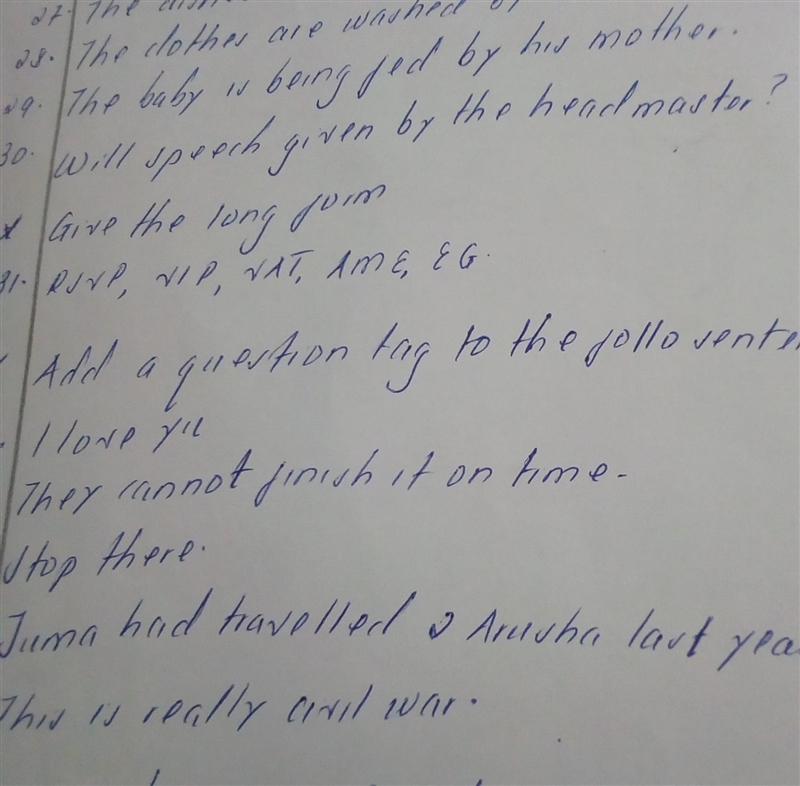 27. The
28. The clothes are washed
29. The baby is being fed by his mother.
30. Will speech given by the headmaster?
Give the long form
31. RSVP, VIP, VAT, AME, EG.
Add a question tag to the follo
I love yu
They cannot finish it on time.
Stop there.
Juma had travelled 2 Arusha last
This is really civil war.